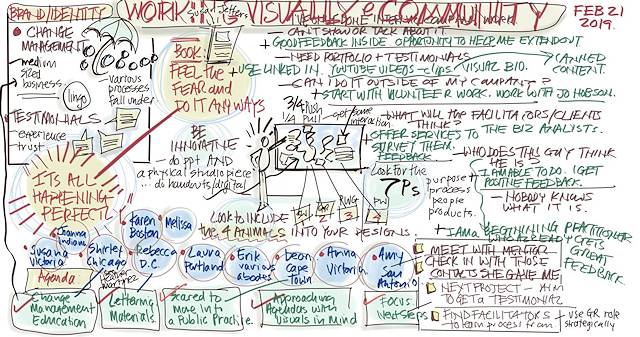 BRAND/IDENTITY
WORKING VISUALLY e COMMUNITY
FEB 21
2019.
CHANGE
MANAGEMENT
medium
sized
business
lingo
various
processes
fall under
TESTIMONIALS
experience
trust
IT'S ALL
HAPPENING
PERFECTLY
Susan Jeffers
BOOK
FEEL THE
FEAR AND
DO IT ANYWAYS
BE
INNOVATIVE
do ppt AND
a physical studio piece
... do handouts/digital
CAN'T SHOW OR TALK ABOUT IT.
+ GOOD FEEDBACK INSIDE OPPORTUNITY TO HELP ME EXTEND OUT
NEED PORTFOLIO + TESTIMONIALS
CANNED
CONTENT.
+ USE LINKED IN. YOUTUBE VIDEOS - clips/VISUAL BIO.
CAN I DO IT OUTSIDE OF MY COMPANY?
+ START WITH VOLUNTEER WORK. WORK WITH JO HOBSON.
3/4 PUSH
1/4 PULL
get some
interaction
WHAT WILL THE FACILITATORS/CLIENTS
THINK?
OFFER SERVICES TO THE BIZ ANALYSTS.
SURVEY THEM.
FEEDBACK
WHO DOES THIS GUY THINK
HE IS?
I AM ABLE TO DO. I GET
POSITIVE FEEDBACK.
NOBODY KNOWS
WHAT IT IS.
I AM A BEGINNING PRACTITIONER
WHO ALREADY GETS
GREAT
FEEDBACK
Look for the
7 Ps.
purpose +
process
people
products.
Look to INCLUDE
the 4 ANIMALS INTO YOUR DESIGNS.
Joanna
Indiana
Karen
Boston
Melissa
Susana
Victoria
Shirley
Chicago
Rebecca
D.C
Laura
Portland
Erik
various
abodes
Deon
Cape
Town
Anna
Victoria
Amy
San
Antonio
Agenda
Change
Management
Education
Lettering
Materials
Scared to
Move Into
a Public Practice
Approaching
Agendas with
Visuals in Mind
Focus
Next Steps
MEET WITH MENTOR
CHECK IN WITH THOSE
CONTACTS SHE GAVE ME
NEXT PROJECT - AIM
TO GET A TESTIMONIAL
FIND FACILITATORS
to learn process from.
+ use GR role
strategically